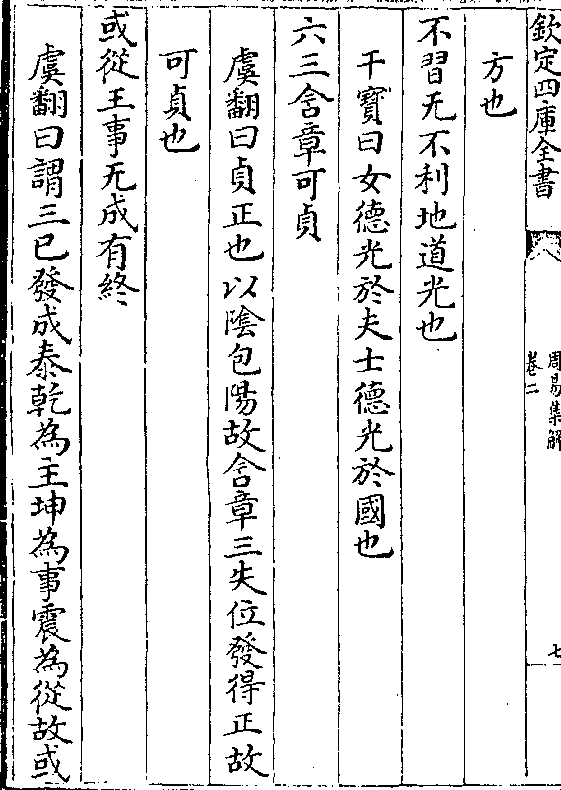 欽定四庫全書
周易集解
卷二
七
方也
不習无不利地道光也
干寶曰女德光於夫士德光於國也
六三含章可貞
虞翻曰貞正也以陰包陽故含章三失位發得正故
可貞也
或從王事无成有終
虞翻曰謂三已發成泰乾為主坤為事震為從故或